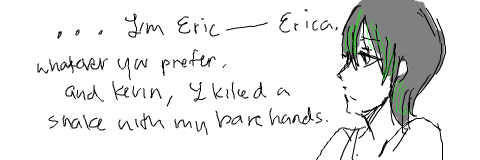 ... I'm Eric — Erica.
whatever you prefer.
and kevin, I killed a
snake with my bare hands.